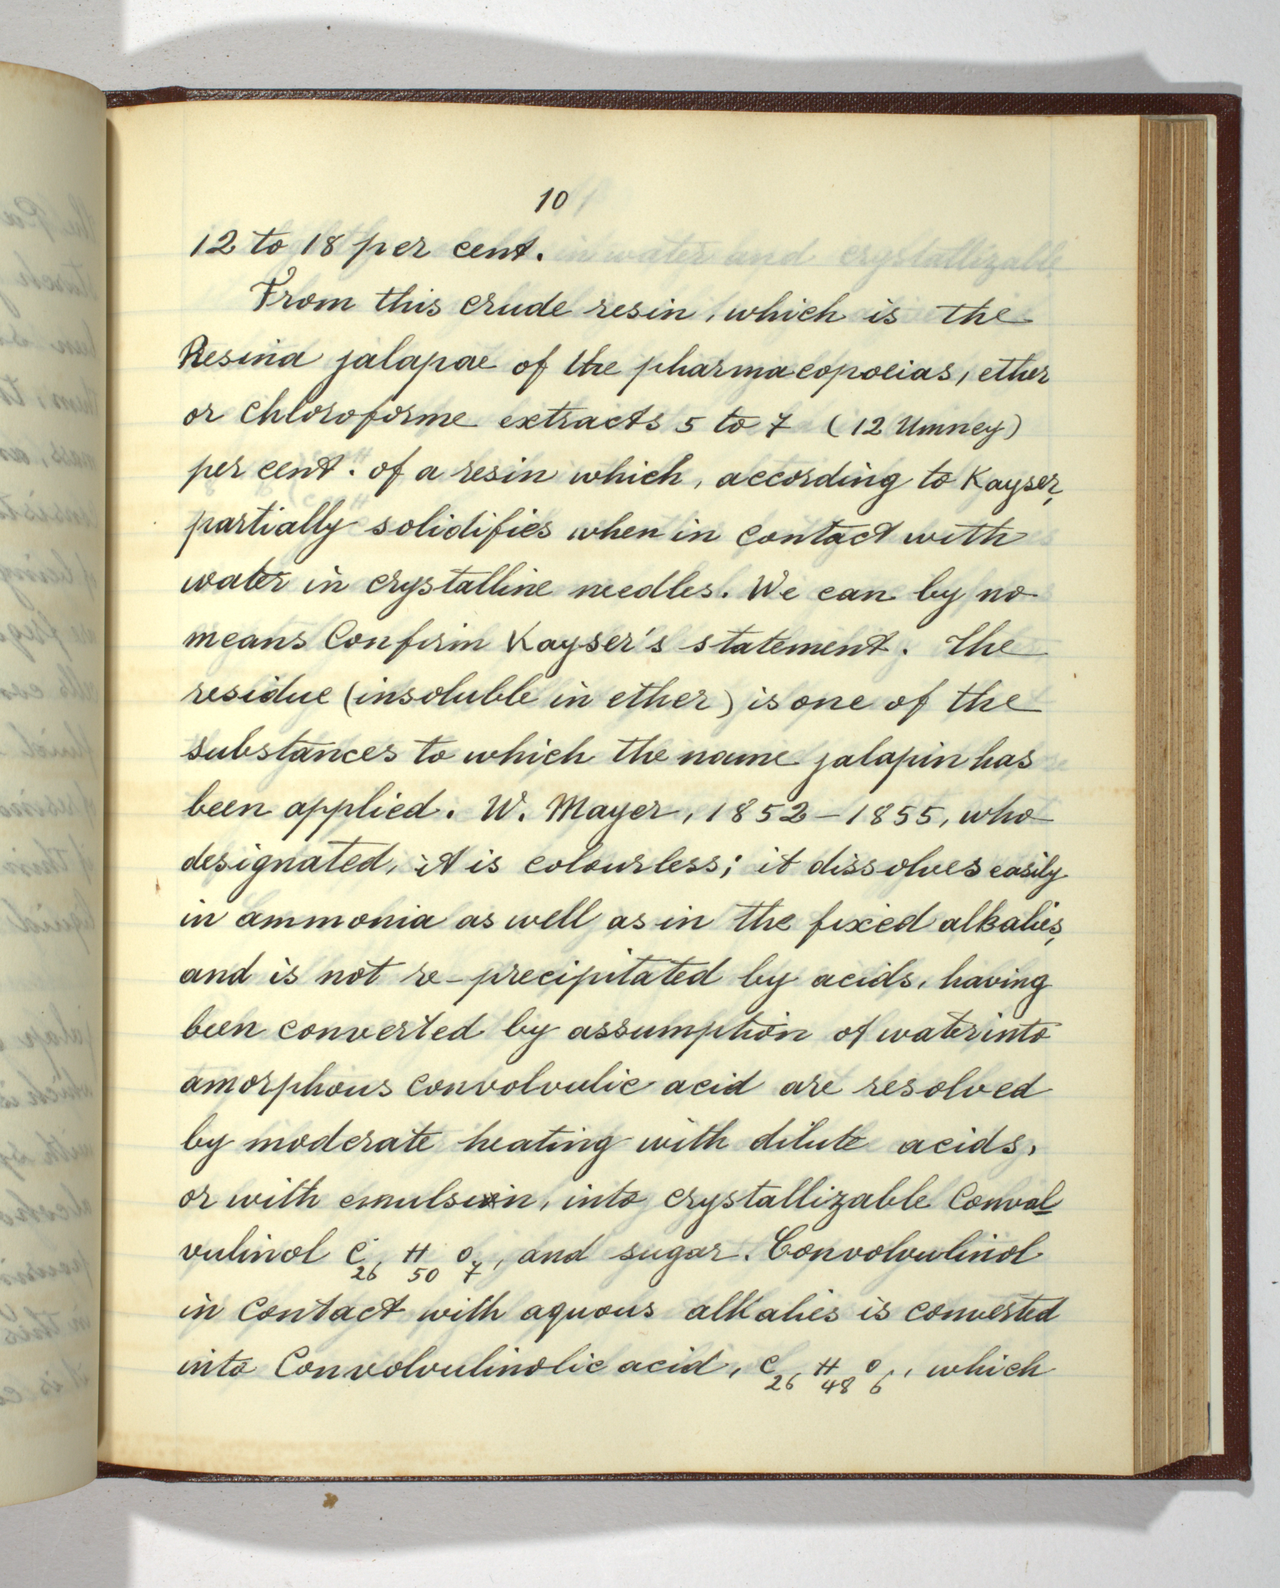 10
12 to 18 per cent.
From this crude resin, which is the
Resina jalapae of the pharmacopoeias, ether
or chloroforme extracts 5 to 7 (12 Umney)
per cent. of a resin which, according to Kayser,
partially solidifies when in contact with
water in crystalline needles. We can by no
means confirm Kayser's statement. The
residue (insoluble in ether) is one of the
substances to which the name jalapin has
been applied. W. Mayer, 1852-1855, who
designated, it is colourless; it dissolves easily
in ammonia as well as in the fixed alkalies,
and is not re-precipitated by acids, having
been converted by assumption of water into
amorphous convolvulic acid are resolved
by moderate heating with dilute acids,
or with emulsin, into crystallizable Conval
vulinol C26 H50 O7, and sugar. Convolvulinol
in contact with aquous alkalies is converted
into Convolvulinolic acid, C26 H48 O6, which